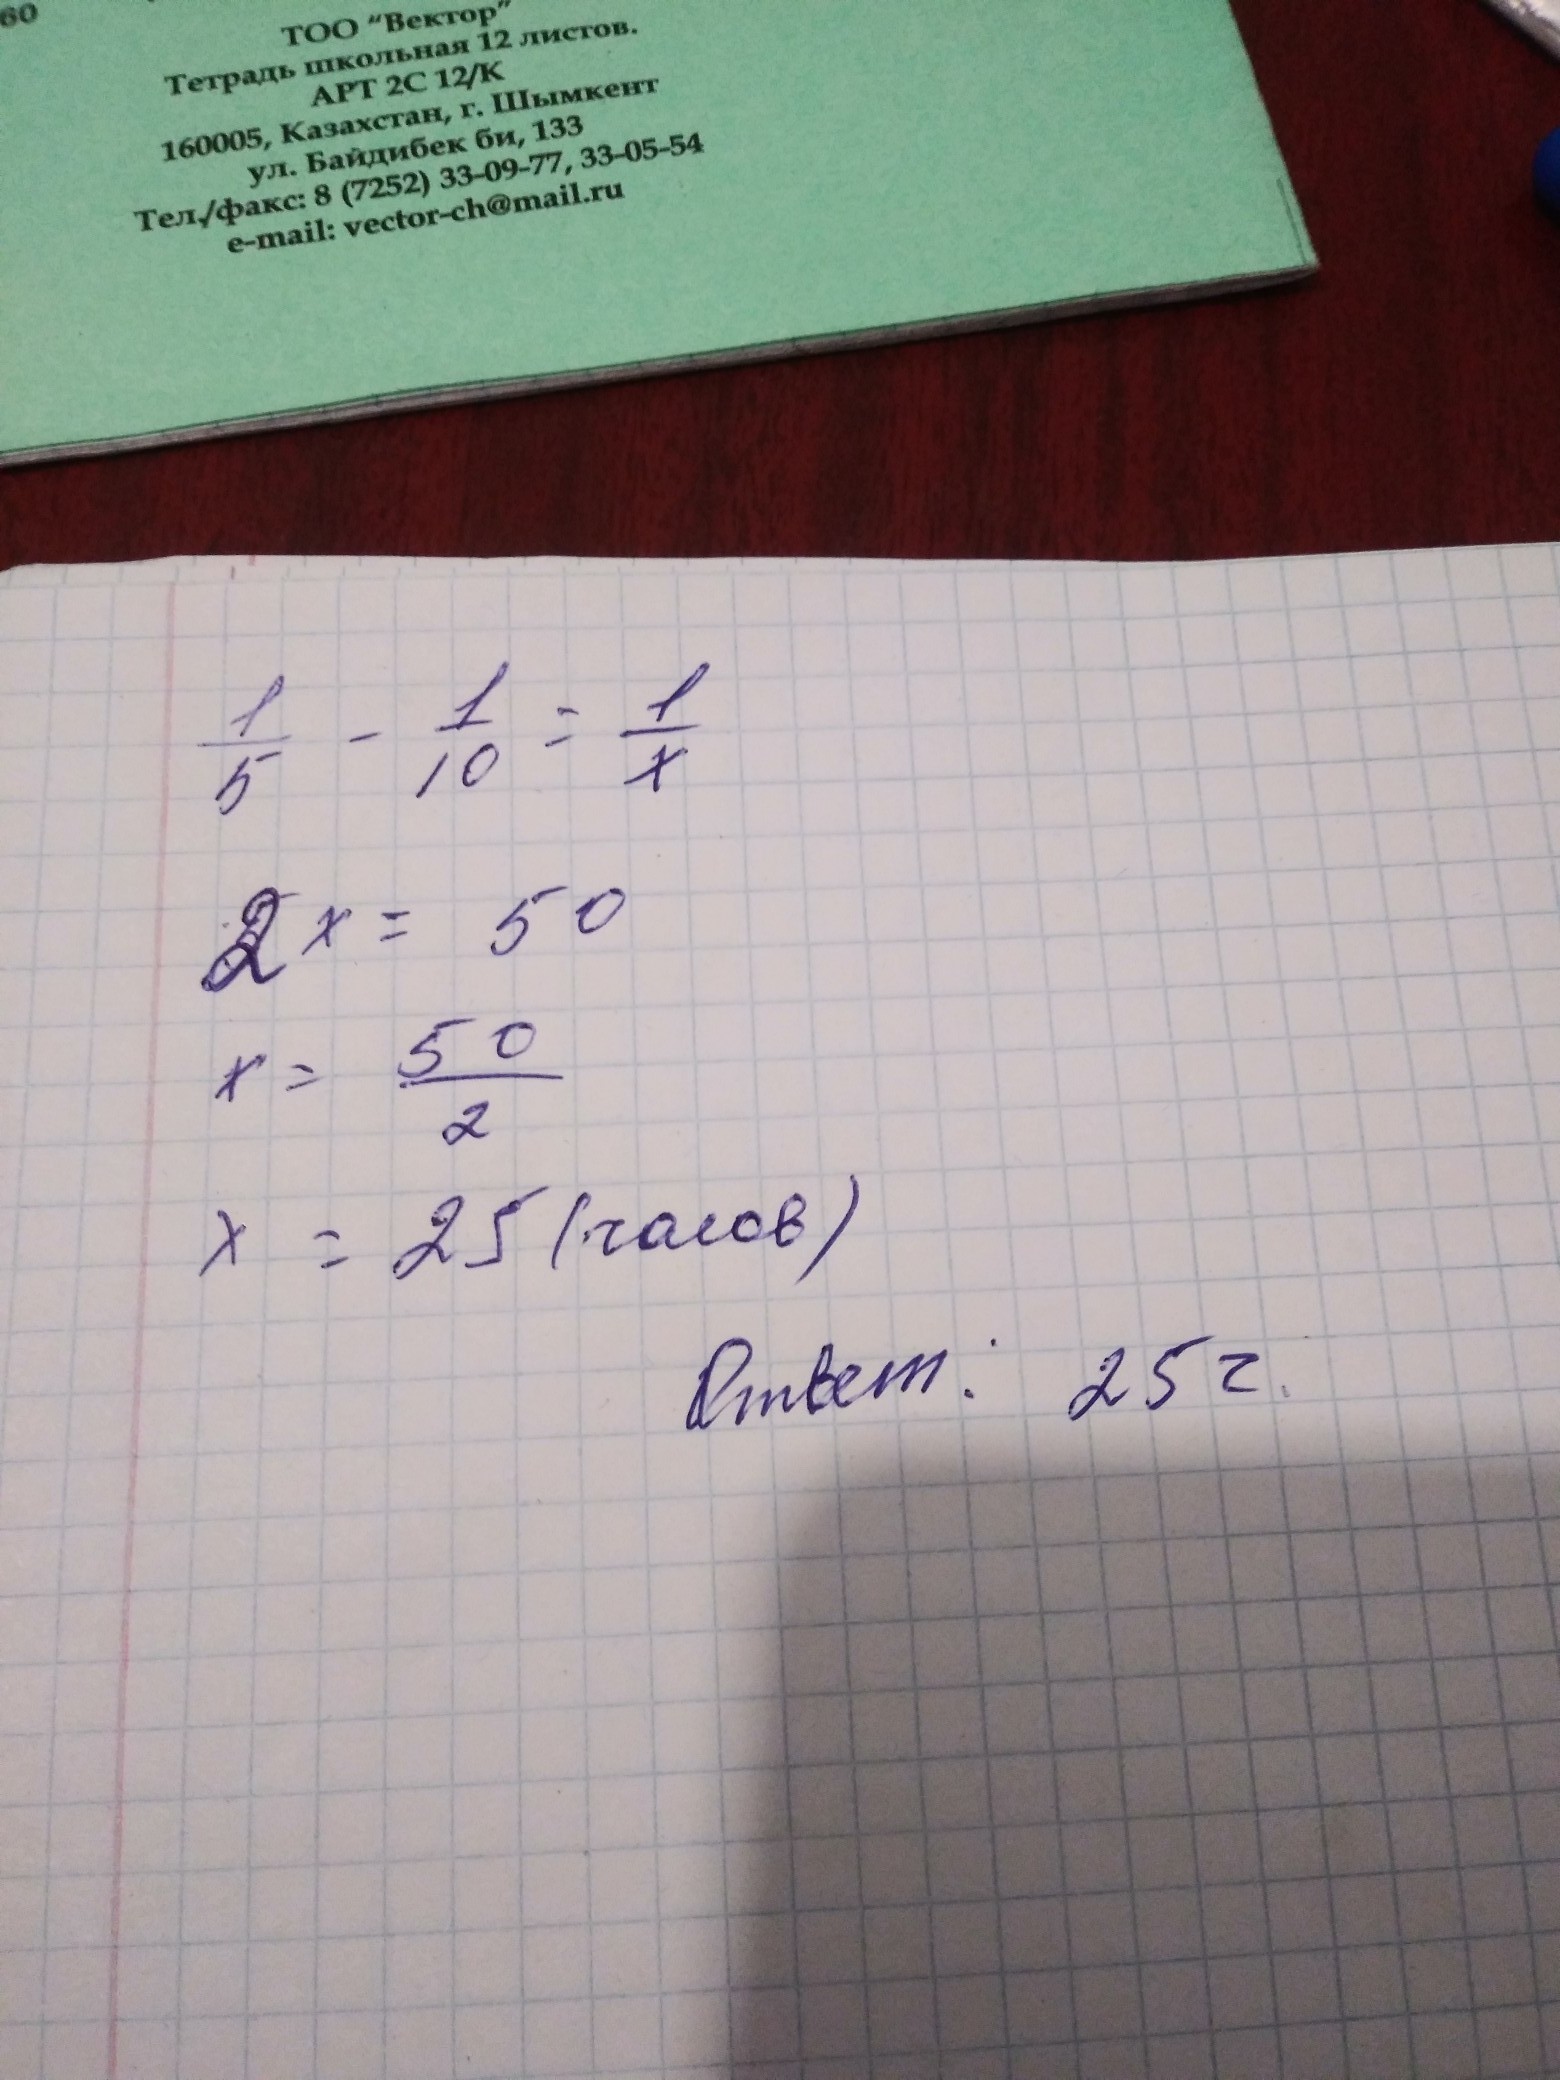 60
ТОО “Вектор”
Тетрадь школьная 12 листов.
АРТ 2С 12/К
160005, Казахстан, г. Шымкент
ул. Байдибек би, 133
Тел./факс: 8 (7252) 33-09-77, 33-05-54
e-mail: vector-ch@mail.ru
1/5 - 1/10 = 1/x
2x = 50
x = 50/2
x = 25 (часов)
Ответ: 25 ч.